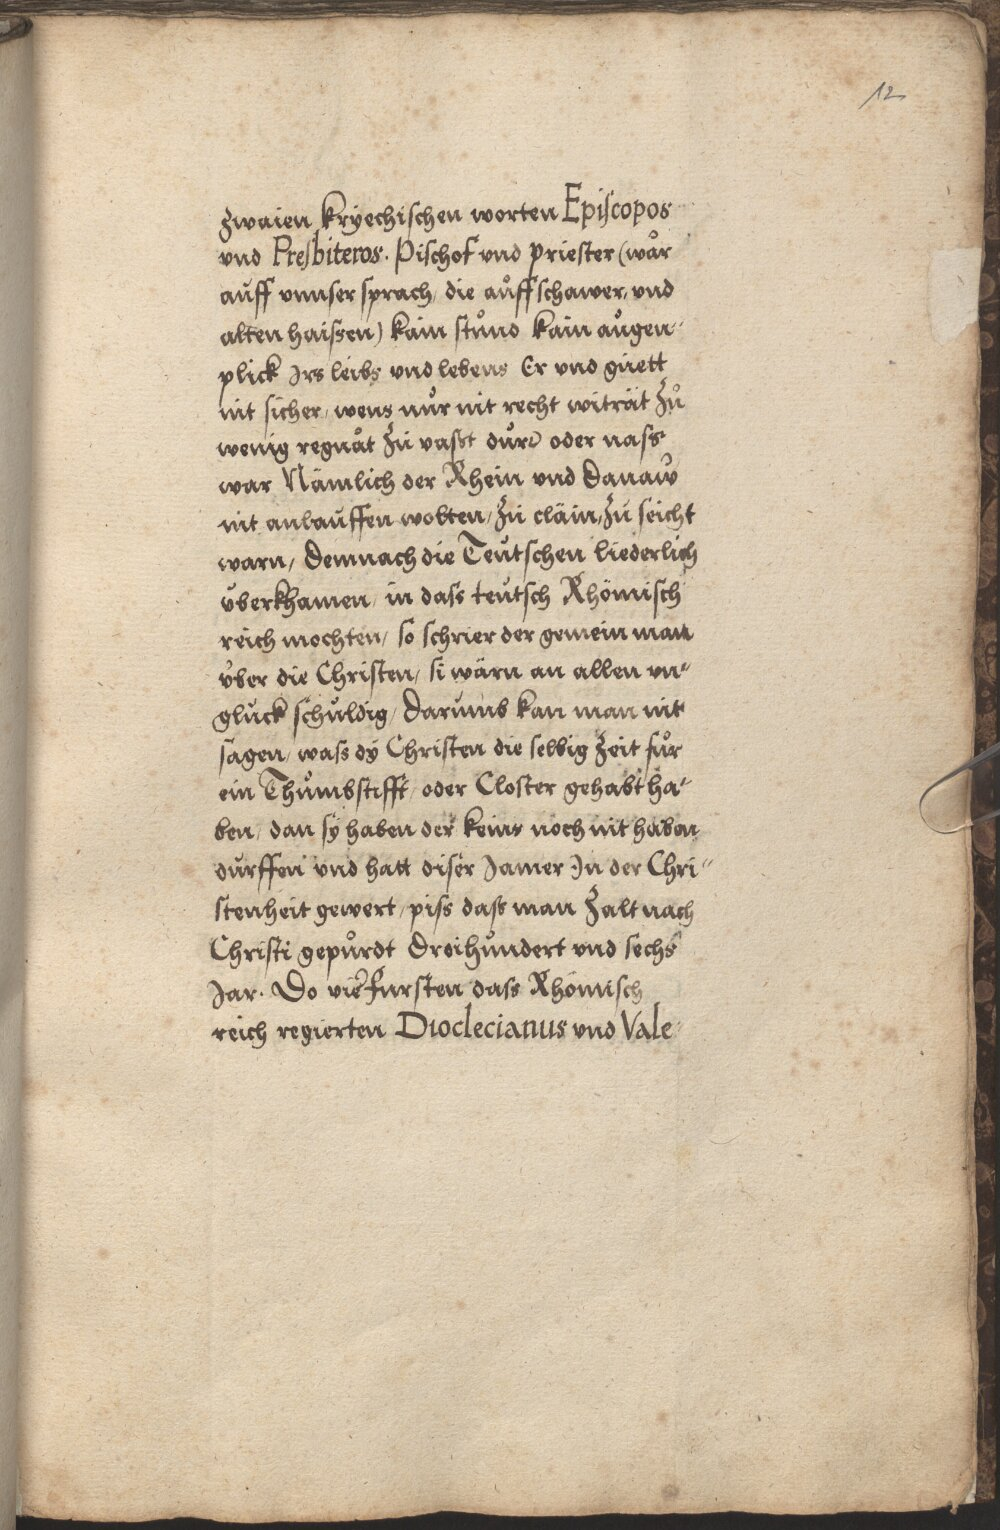 12
zwaien kryechischen worten Episcopos
vnd Presbiteros. Pischof vnd priester (wår
auff vnnser sprach, die auffschawer, vnd
alten haissen) kain stůnd kain augen-
plick Jrs leibs vnd lebens Er vnd guett
nit sicher, wens nur nit recht witrät zů
wenig regnåt zu vasst dürr oder nass
war Nämlich der Rhein vnd Danaw
nit anlauffen wolten, zu cläin, zu seicht
warn, Demnach die Teutschen liederlich
vberkhamen, in dass teutsch Rhömisch
reich mochten, so schrier der gemein man
vber die Christen, si wärn an allen vn-
gluck schuldig, Darumb kan man nit
sagen, wass dÿ Christen die selbig zeit für
ein Thumbstifft, oder Closter gehabt ha-
ben, dan sÿ haben der keins noch nit haben
durffen vnd hatt diser Jamer Jn der Chri-
stenheit gewert, piss dass man zalt nach
Christi gepůrdt Dreihundert vnd sechs
Jar. Do vier Fursten dass Rhömisch
reich regierten Dioclecianus vnd Vale-